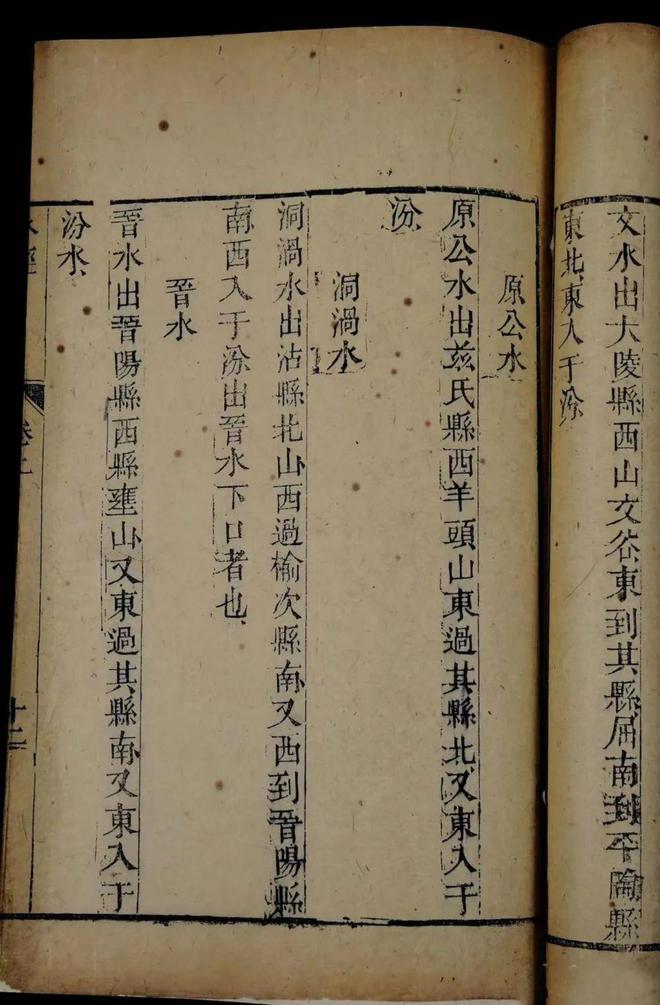 文水出大陵縣西山文谷東到其縣屈南到平陶縣
東北東入于汾
原公水
原公水出茲氏縣西羊頭山東過其縣北又東入于
汾
洞渦水
洞渦水出沾縣北山西過榆次縣南又西到晉陽縣
南西入于汾出晉水下口者也
晉水
晉水出晉陽縣西縣壅山又東過其縣南又東入于
汾水
水經
十二